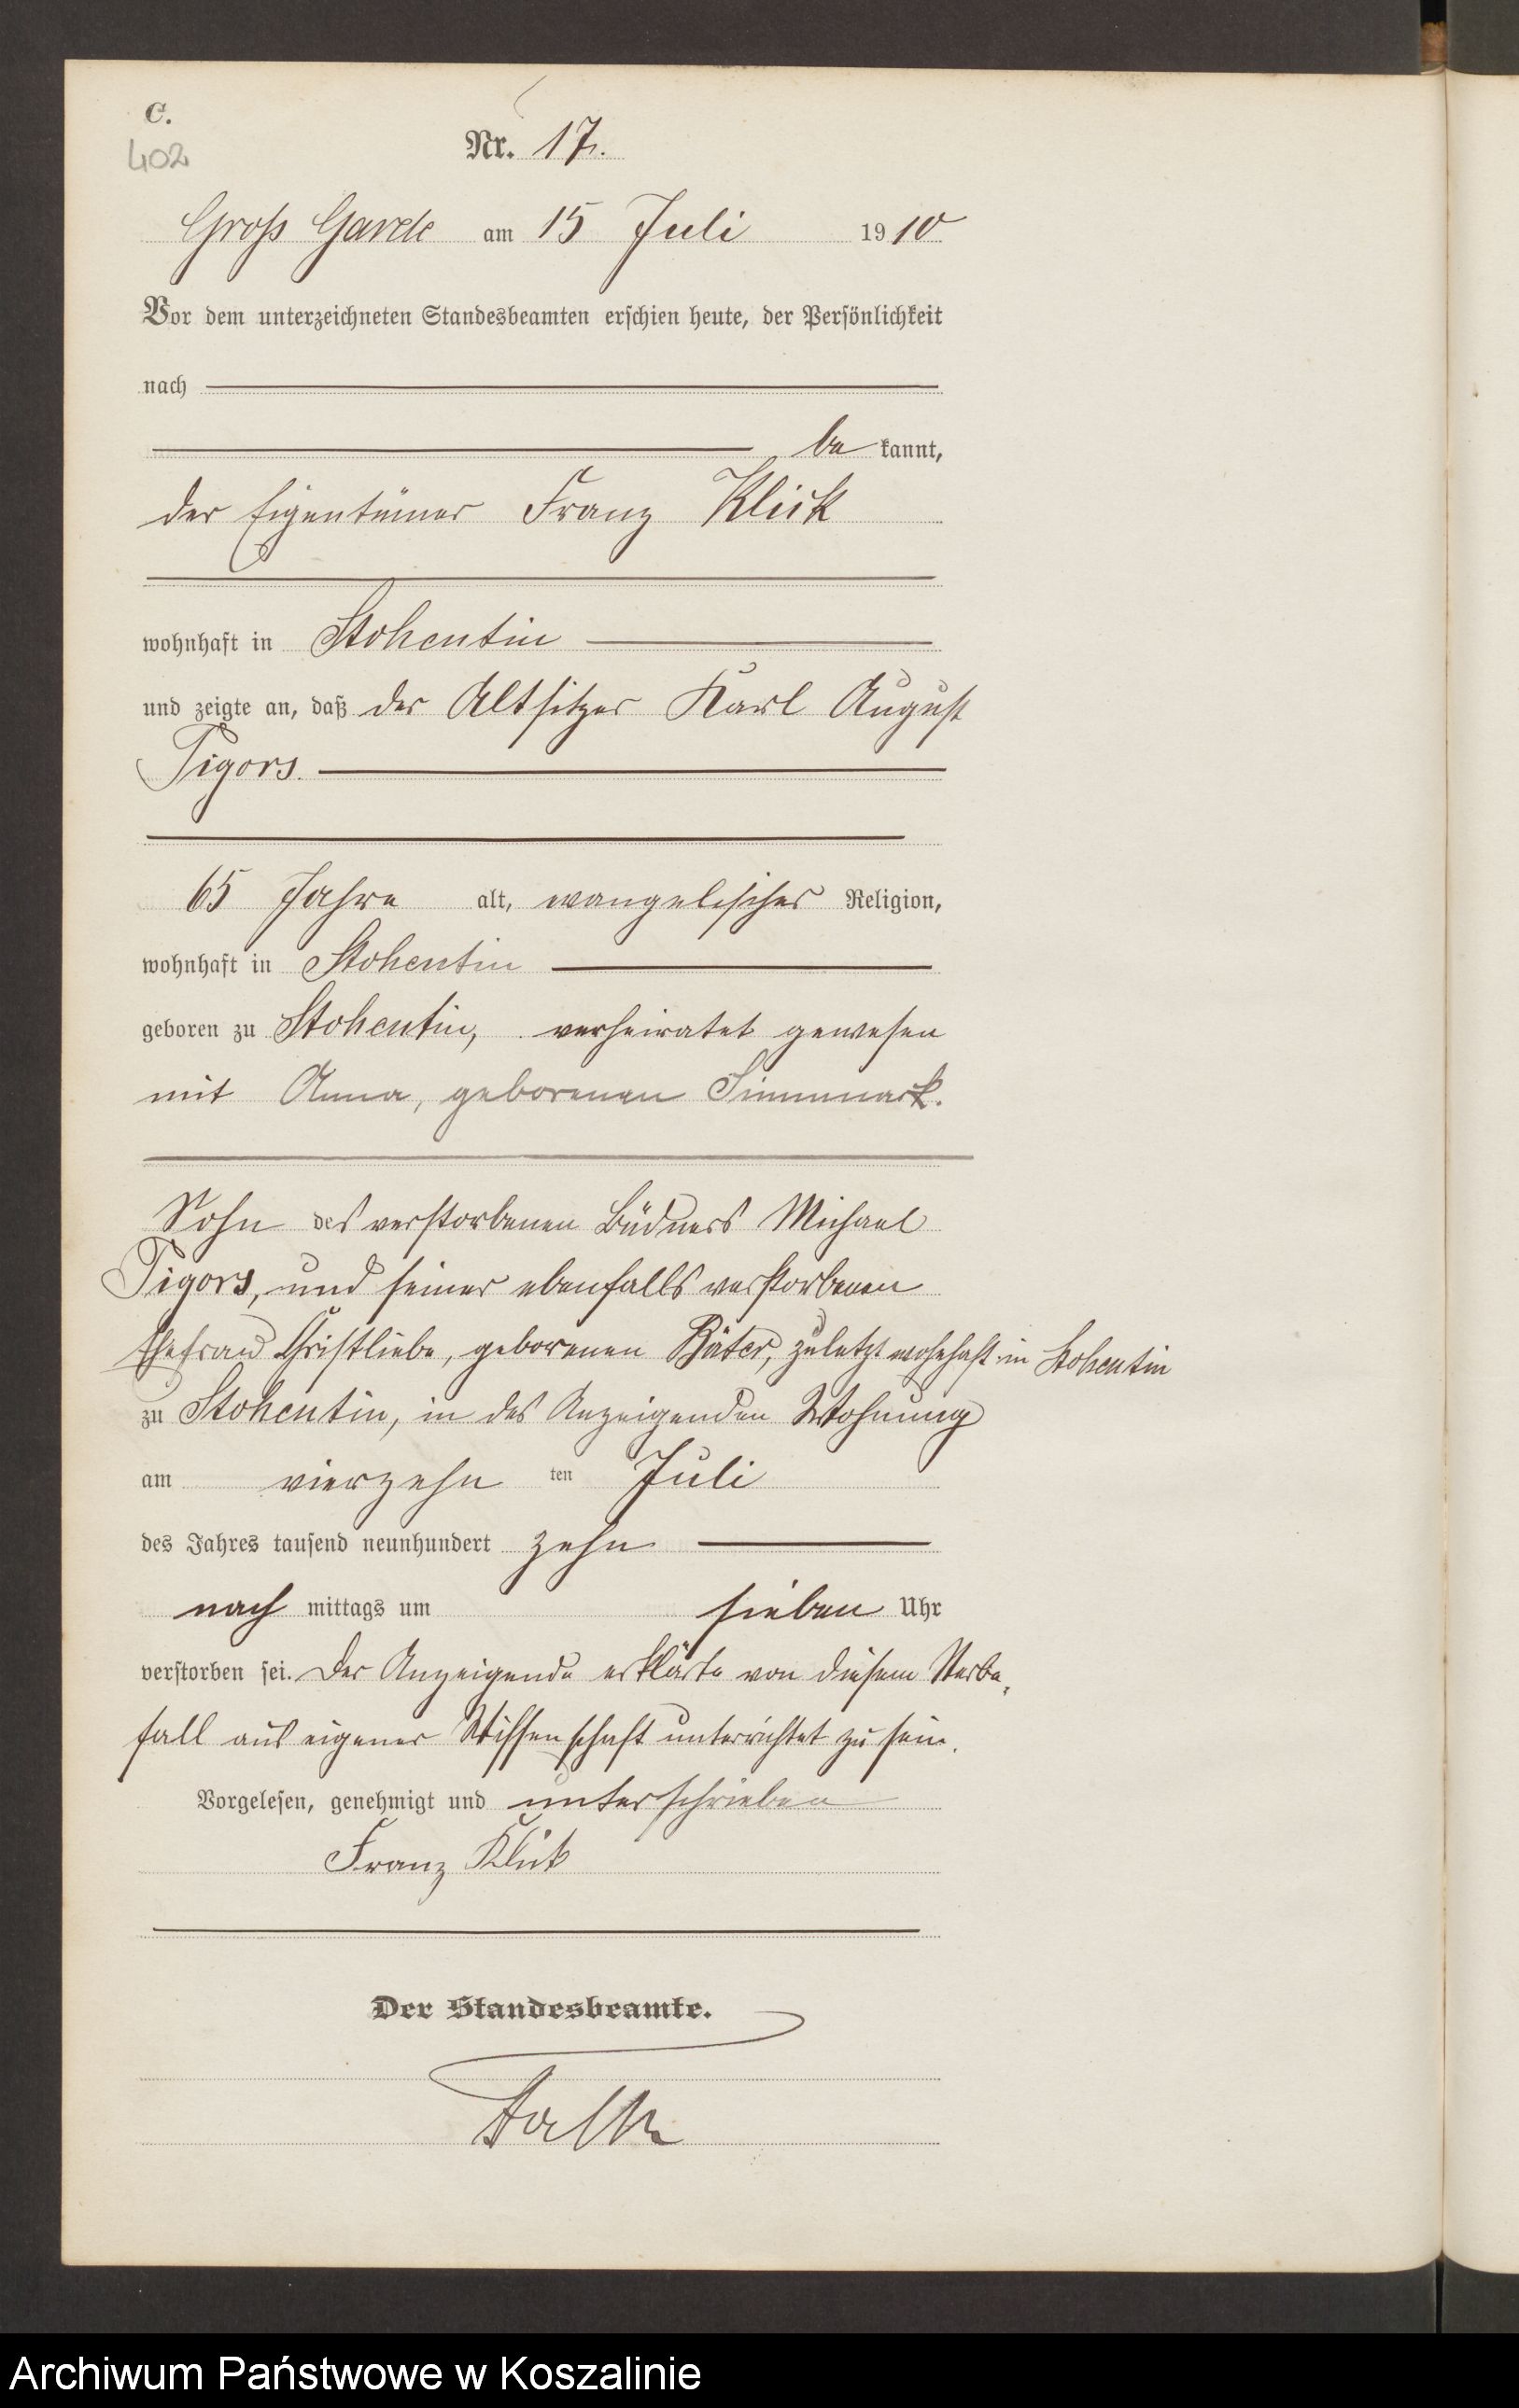 C.
402
Nr. 17.
Groß Garde am 15 Juli 1910
Vor dem unterzeichneten Standesbeamten erschien heute, der Persönlichkeit
nach
be kannt,
der Eigentümer Franz Klick
wohnhaft in Stohentin
und zeigte an, daß der Altsitzer Karl August
Pigors.
65 Jahre alt, evangelischer Religion,
wohnhaft in Stohentin
geboren zu Stohentin, verheiratet gewesen
mit Anna, geborenen
Sohn des verstorbenen Büdners Michael
Pigors, und seiner ebenfalls verstorbenen
Ehefrau Christliebe, geborenen zuletzt wohnhaft in Stohentin
zu Stohentin, in des Anzeigenden Wohnung
am vierzehn ten Juli
des Jahres tausend neunhundert zehn
nach mittags um sieben Uhr
verstorben sei. Der Anzeigende erklärte von diesem Sterbe,
fall aus eigener Wissenschaft unterrichtet zu sein.
Vorgelesen, genehmigt und unterschrieben
Franz Klick
Der Standesbeamte.
Archiwum Państwowe w Koszalinie